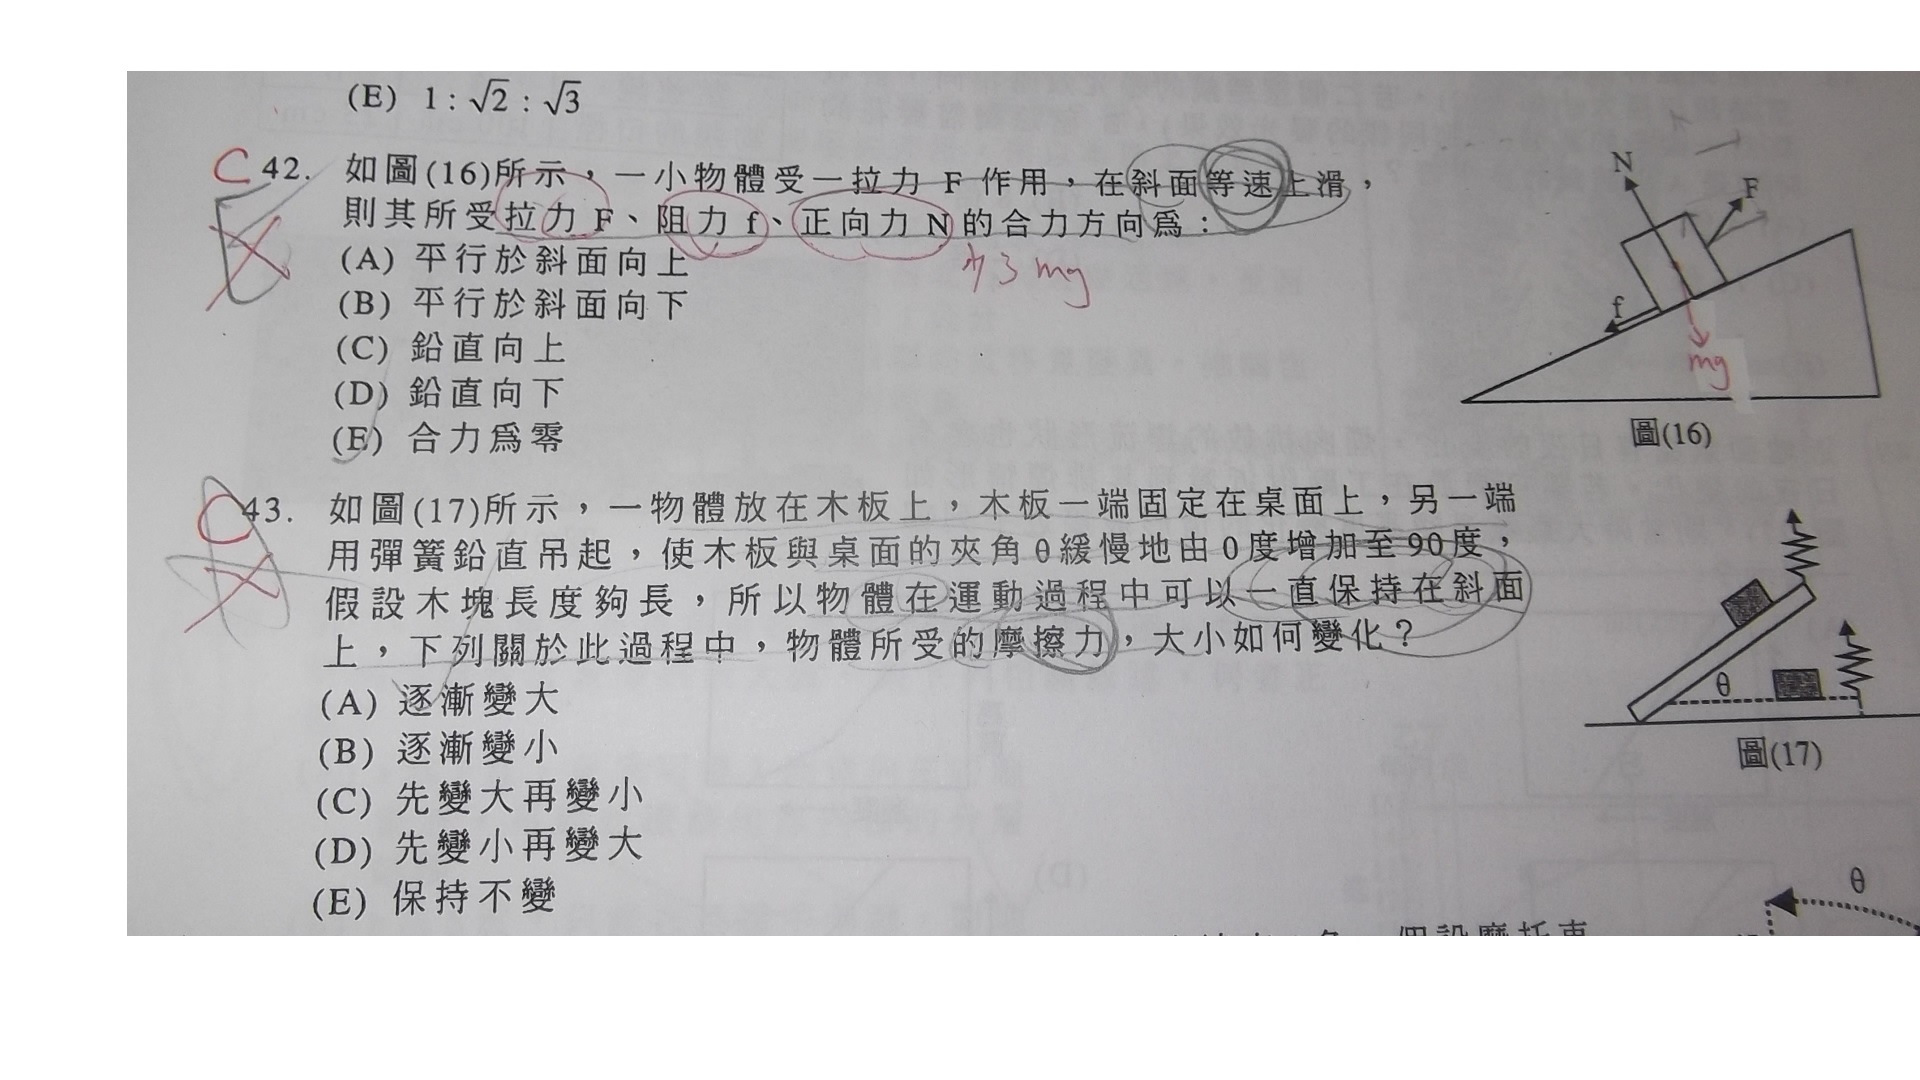 (E) 1 : √2 : √3
C 42. 如圖(16)所示，一小物體受一拉力 F 作用，在斜面等速上滑，
則其所受拉力 F、阻力 f、正向力 N 的合力方向爲：
(A) 平行於斜面向上
(B) 平行於斜面向下
(C) 鉛直向上
(D) 鉛直向下
(E) 合力爲零
mg
N
F
f
mg
圖(16)
C 43. 如圖(17)所示，一物體放在木板上，木板一端固定在桌面上，另一端
用彈簧鉛直吊起，使木板與桌面的夾角 θ 緩慢地由 0 度增加至 90 度，
假設木塊長度夠長，所以物體在運動過程中可以一直保持在斜面
上，下列關於此過程中，物體所受的摩擦力，大小如何變化？
(A) 逐漸變大
(B) 逐漸變小
(C) 先變大再變小
(D) 先變小再變大
(E) 保持不變
θ
圖(17)
θ